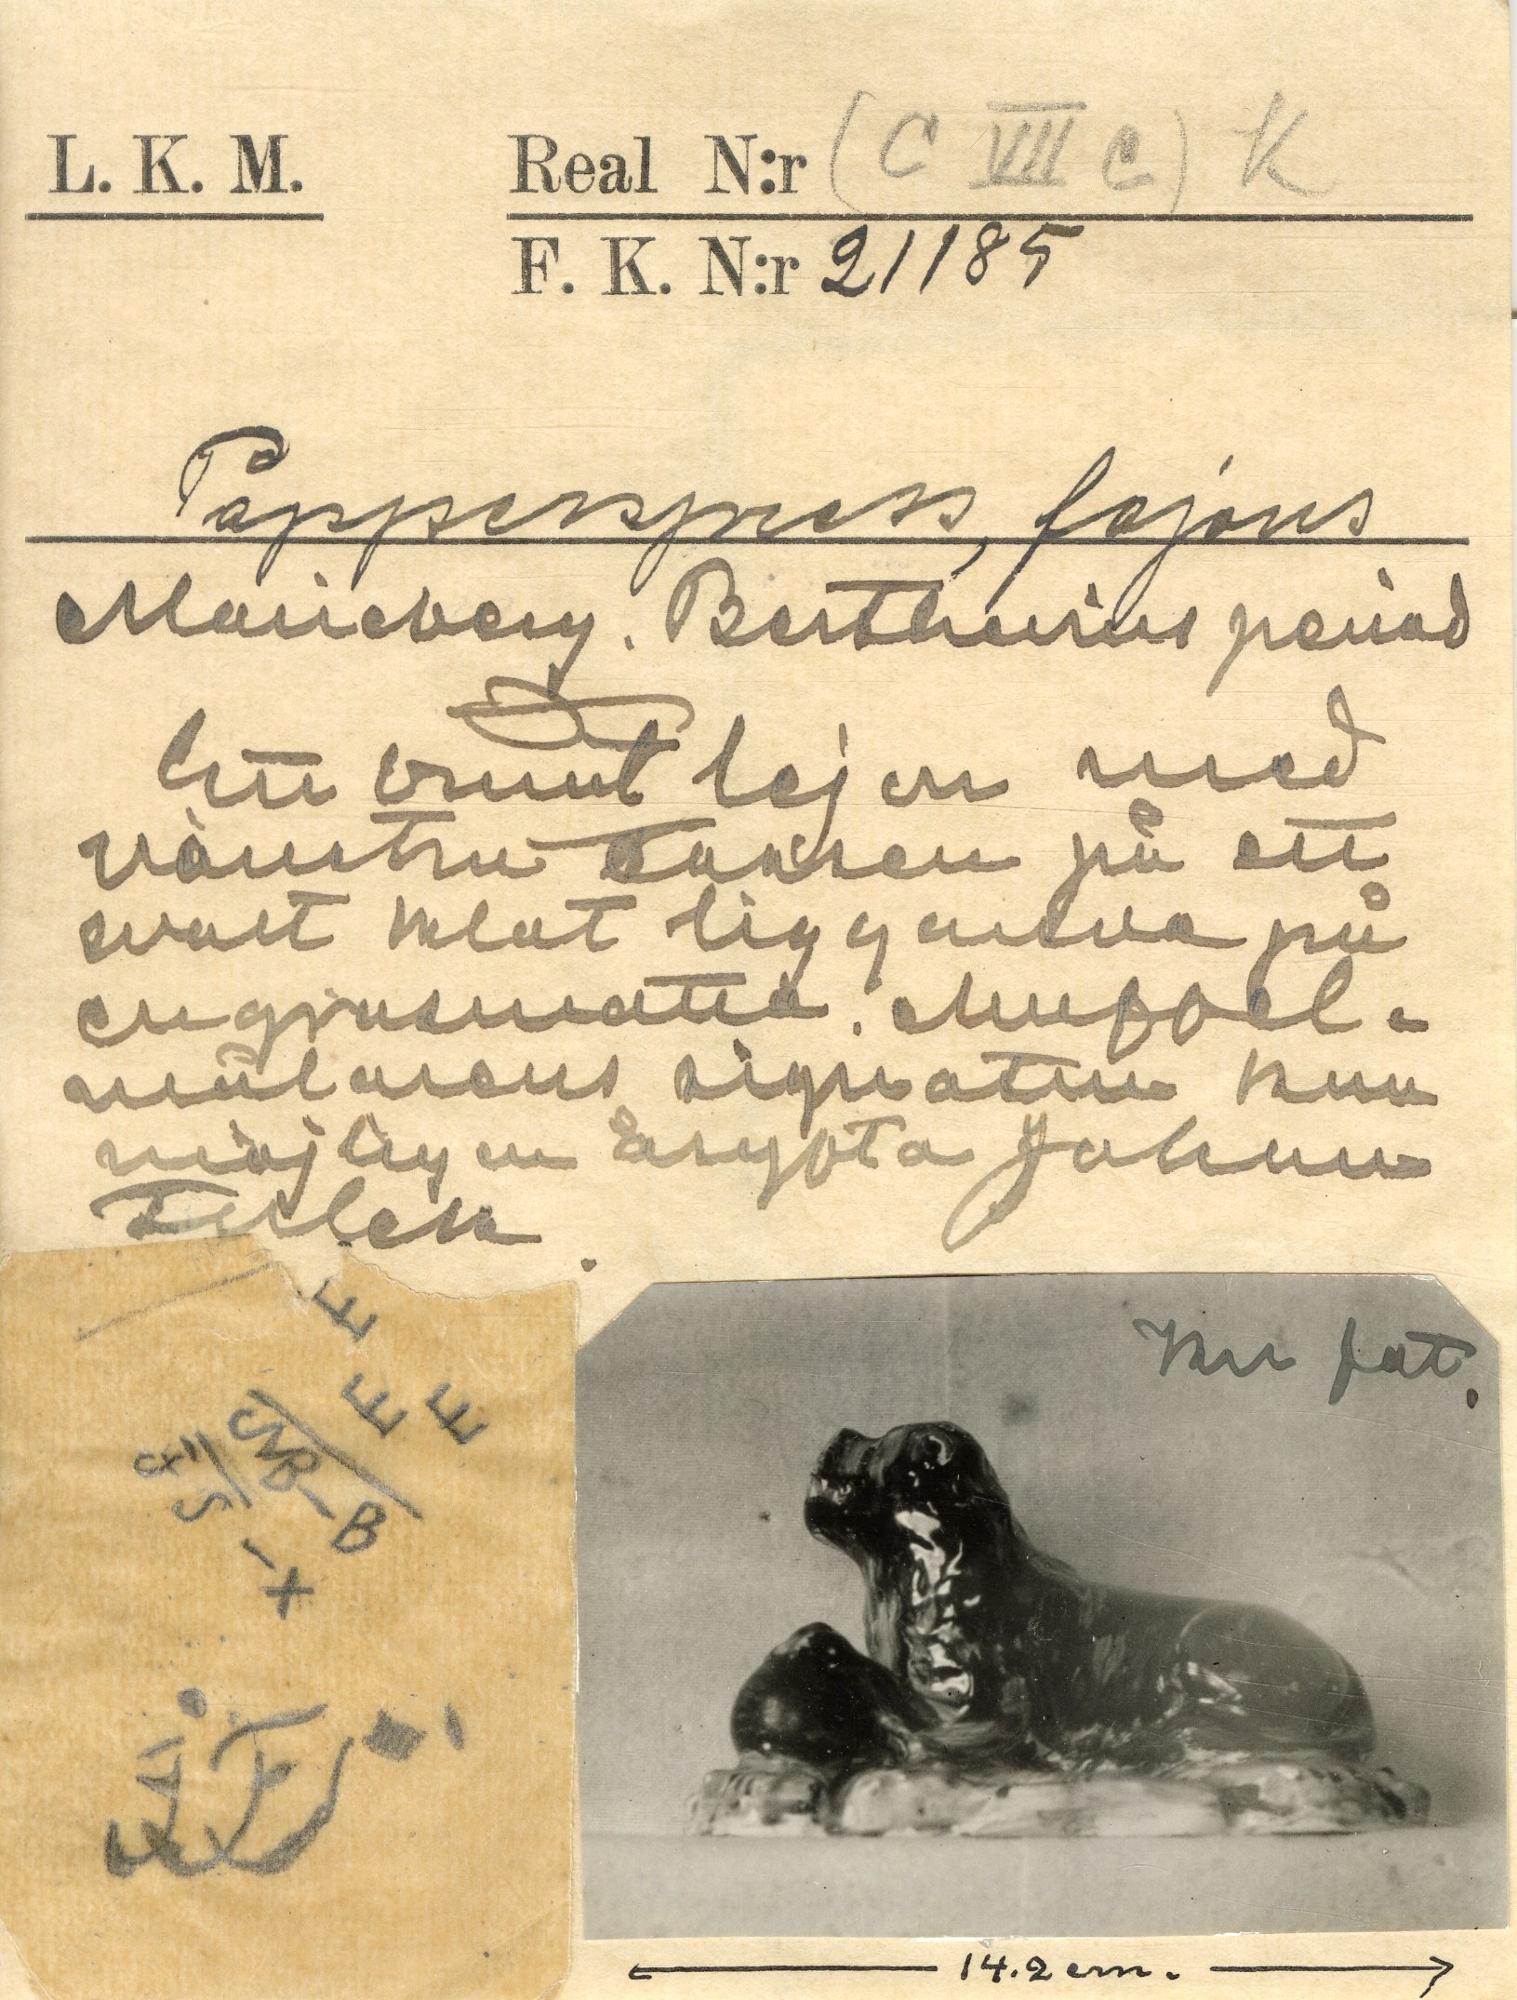 L. K. M.
Real N:r (C VII C) K
F. K. N:r 21185
Papperspress, fajans
Marieberg. Berthevins period
Ett brunt lejon med
vänstra tassen på ett
svart klot liggande på
en gräsmatta. Muffel-
målarens signatur kan
möjligen åsyfta Johan
E
E E
MB-B
- x
14.2 cm.